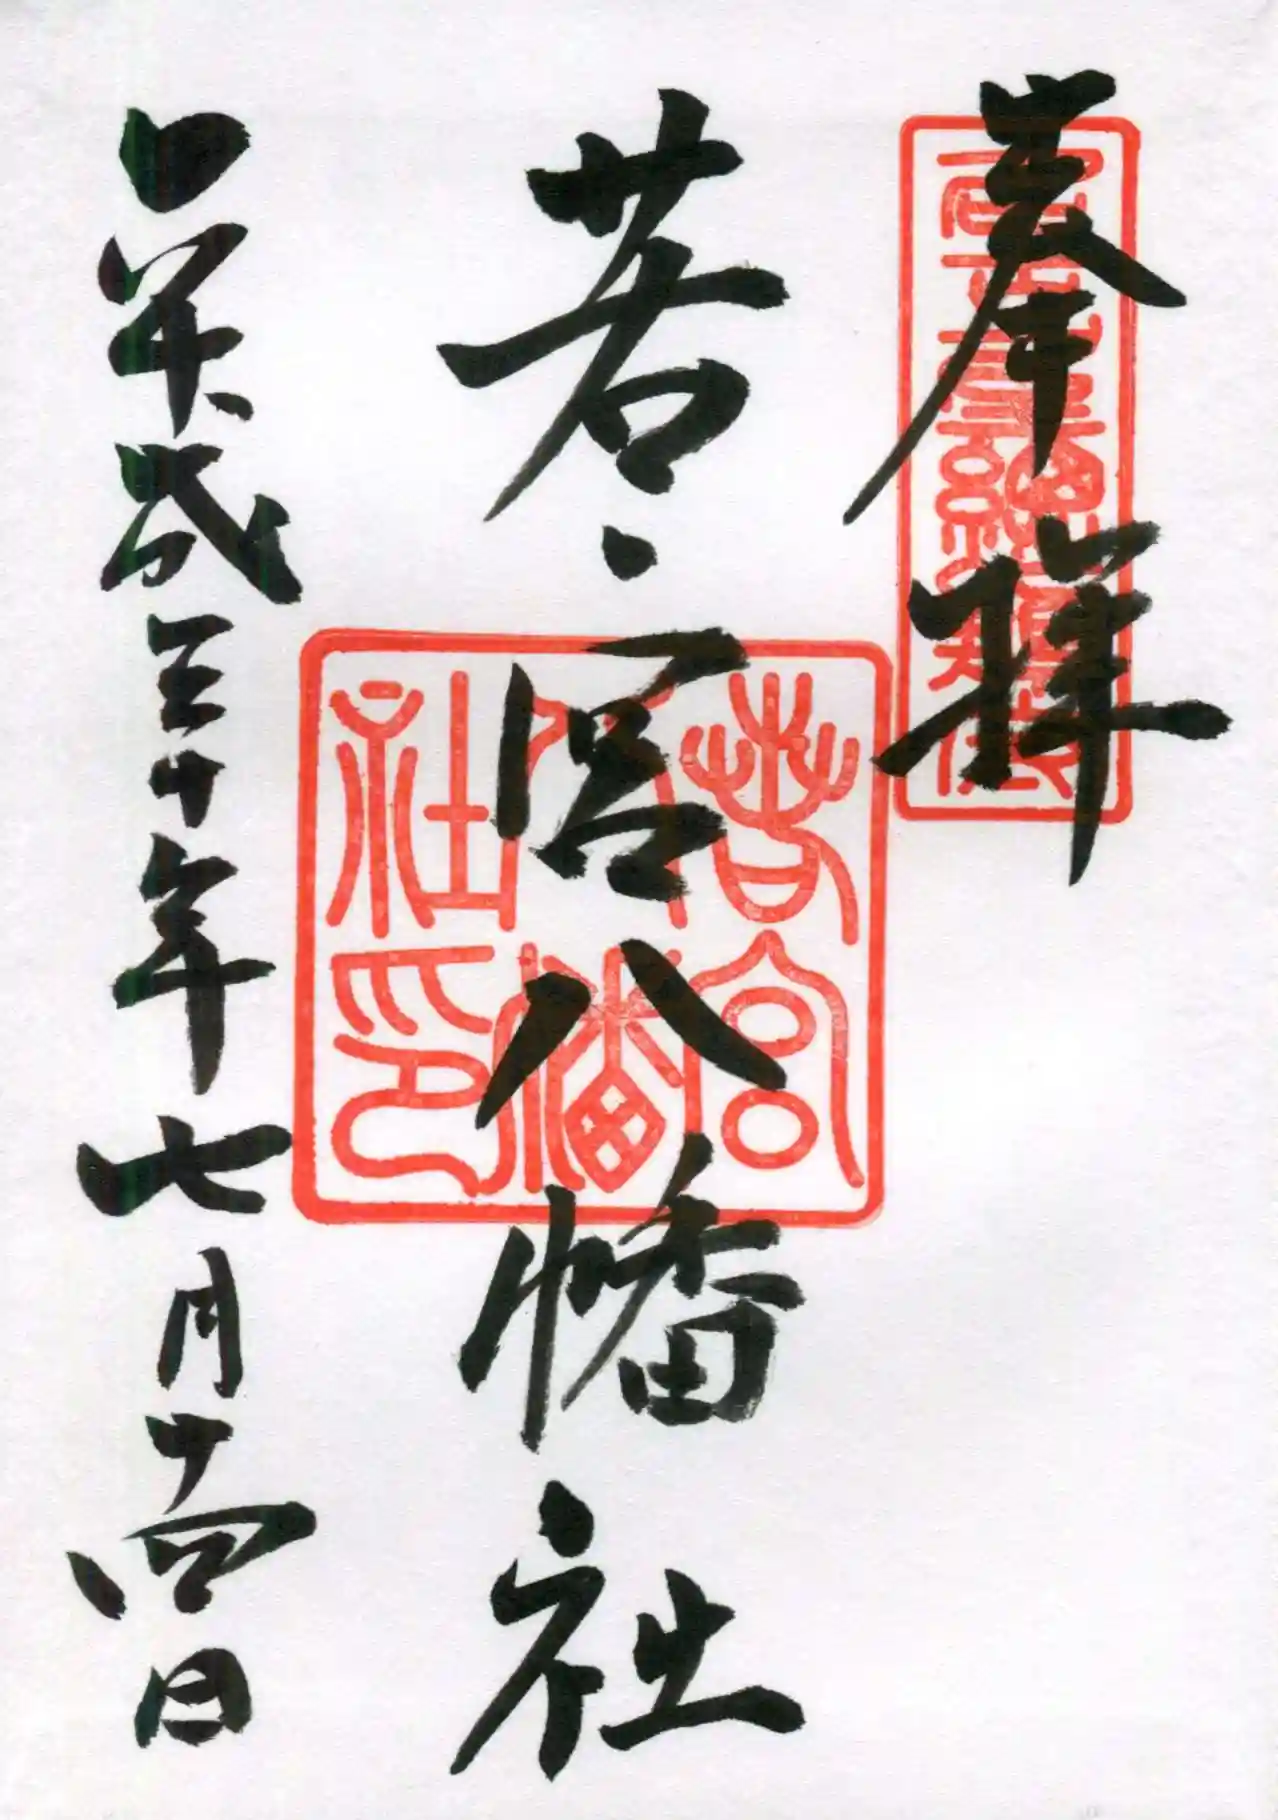 奉拝
若宮八幡社
平成三十年七月十四日
若宮
八幡
社印